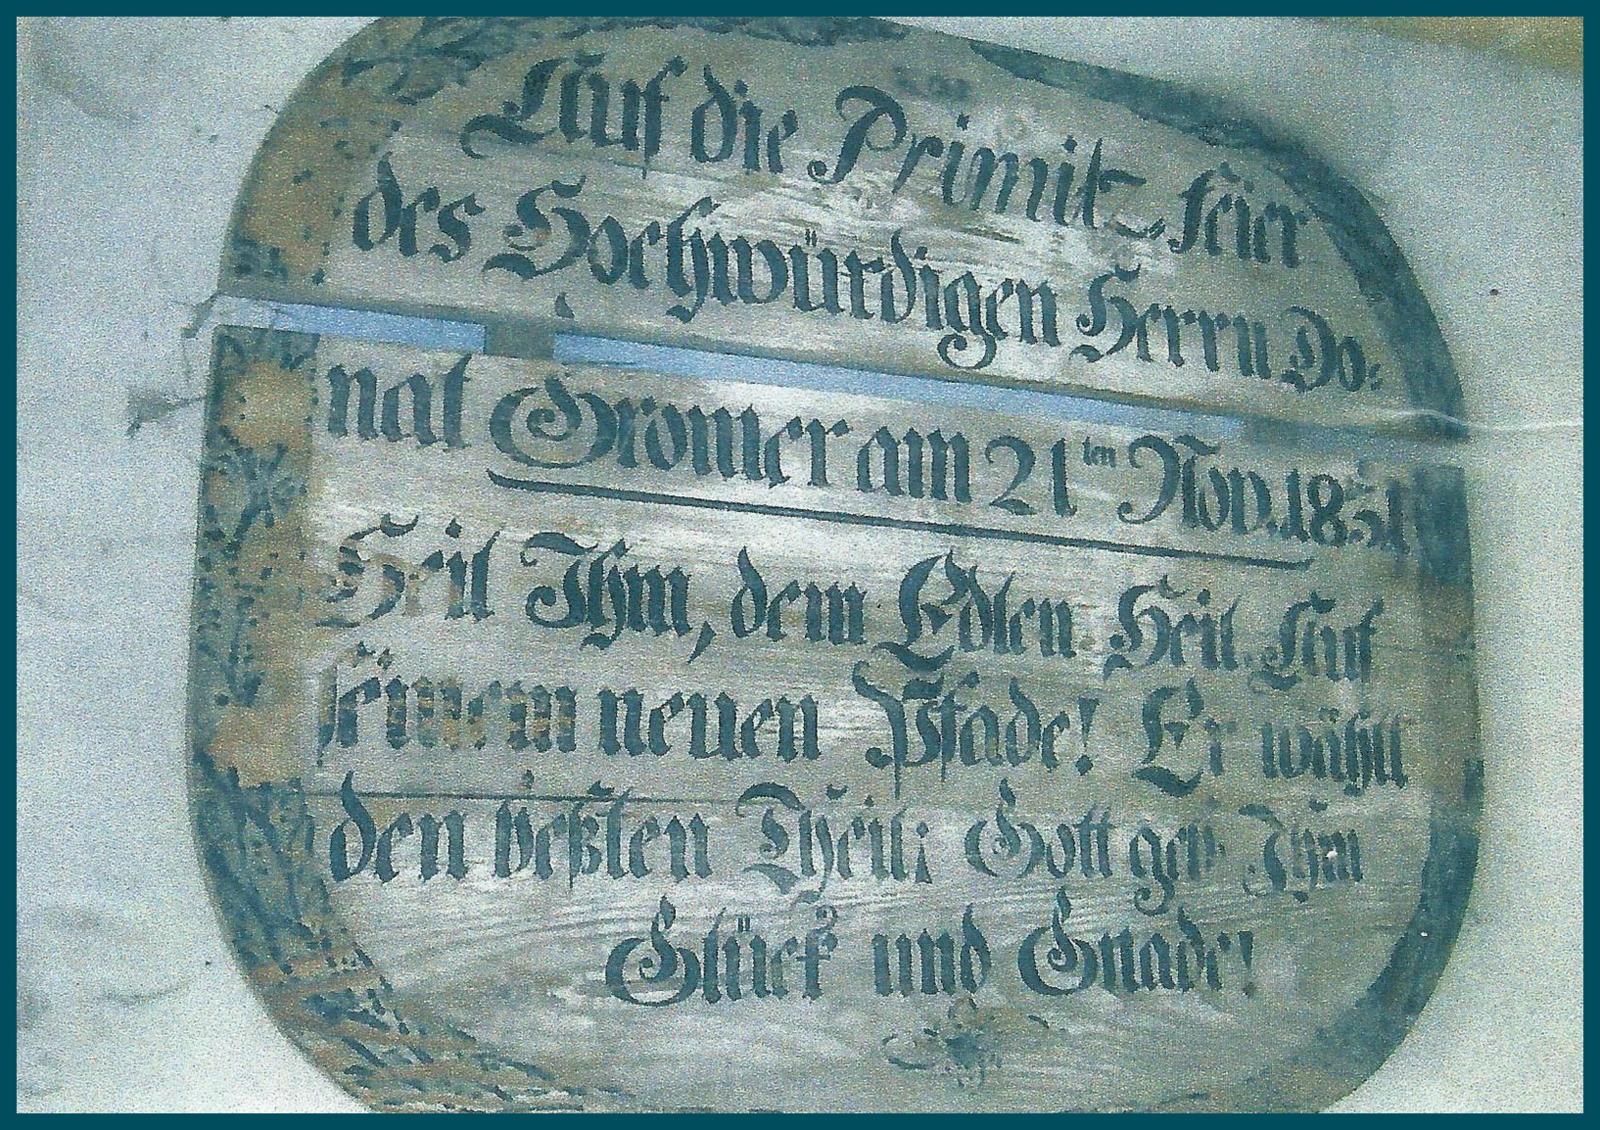 Auf die Primitz-feier
des Hochwürdigen Herrn Do-
nat Gromer am 21ten Nov. 1851
Heil Ihm, dem Edlen Heil. Auf
seinem neuen Pfade! Er wählt
den beßten Theil; Gott geb Ihm
Glück und Gnade!